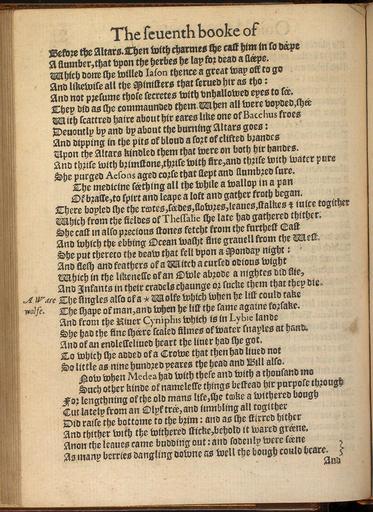 The seuenth booke of
Before the Altars. Then with charmes she cast him in so deepe
A slumber, that vpon the herbes he lay for dead a sleepe.
Which done she willed Iason thence a great way off to go
And likewise all the Ministers that serued hir as tho:
And not presume those secretes with vnhallowed eyes to see.
They did as she commaunded them. When all were voyded, shee
With scattred haire about hir eares like one of Bacchus froes
Deuoutly by and by about the burning Altars goes:
And dipping in the pits of bloud a sort of clifted brandes
Vpon the Altars kindled them that were on both hir handes.
And thrise with brimstone, thrise with fire, and thrise with water pure
She purged Aesons aged corse that slept and slumbred sure.
The medicine seething all the while a wallop in a pan
Of brasse, to spirt and leape a loft and gather froth began.
There boyled she the rootes, seedes, flowres, leaues, stalkes & iuice togither
Which from the fieldes of Thessalie she late had gathered thither.
She cast in also precious stones fetcht from the furthest East
And which the ebbing Ocean washt fine grauell from the West.
She put thereto the deaw that fell vpon a Monday night:
And flesh and feathers of a Witch a cursed odious wight
Which in the likenesse of an Owle abrode a nightes did flie,
And Infants in their cradels chaunge or sucke them that they die.
A Ware wolfe.
The singles also of a * Wolfe which when he list could take
The shape of man, and when he list the same againe forsake.
And from the Riuer Cyniphis which is in Lybie lande
She had the fine sheere scaled filmes of water snayles at hand.
And of an endlesseliued heart the liuer had she got.
To which she added of a Crowe that then had liued not
So little as nine hundred yeares the head and Bill also.
Now when Medea had with these and with a thousand mo
Such other kinde of namelesse things bestead hir purpose through
For lengthning of the old mans life, she tooke a withered bough
Cut lately from an Olyf tree, and iumbling all togither
Did raise the bottome to the brim: and as she stirred hither
And thither with the withered sticke, behold it waxed greene.
Anon the leaues came budding out: and sodenly were seene
As many berries dangling downe as well the bough could beare.
And